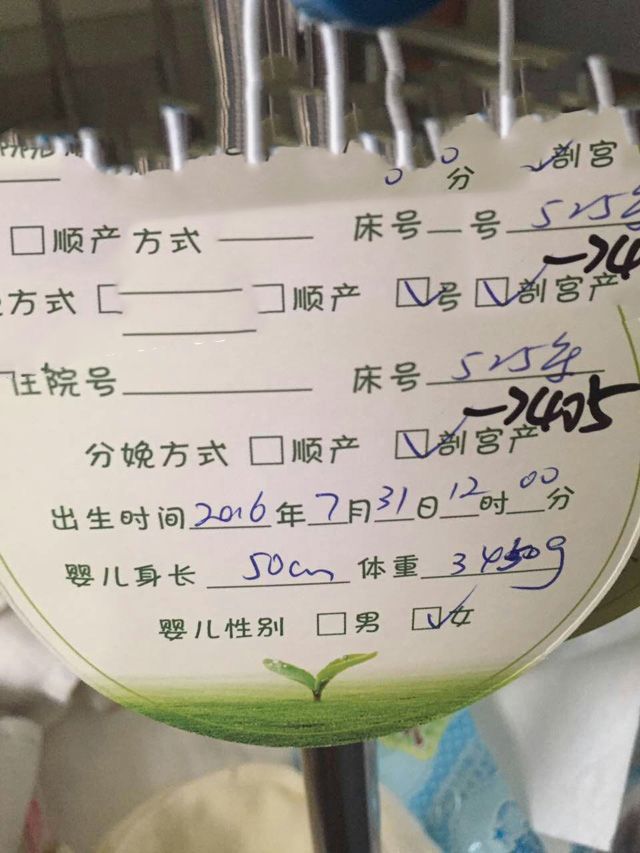 分 剖宫
□顺产方式 床号 号 525
方式 □顺产 ☑号 ☑剖宫产 →4
住院号 床号 525 →405
分娩方式 □顺产 ☑剖宫产
出生时间 2016 年 7 月 31 日 12 时 00 分
婴儿身长 50cm 体重 3450g
婴儿性别 □男 ☑女